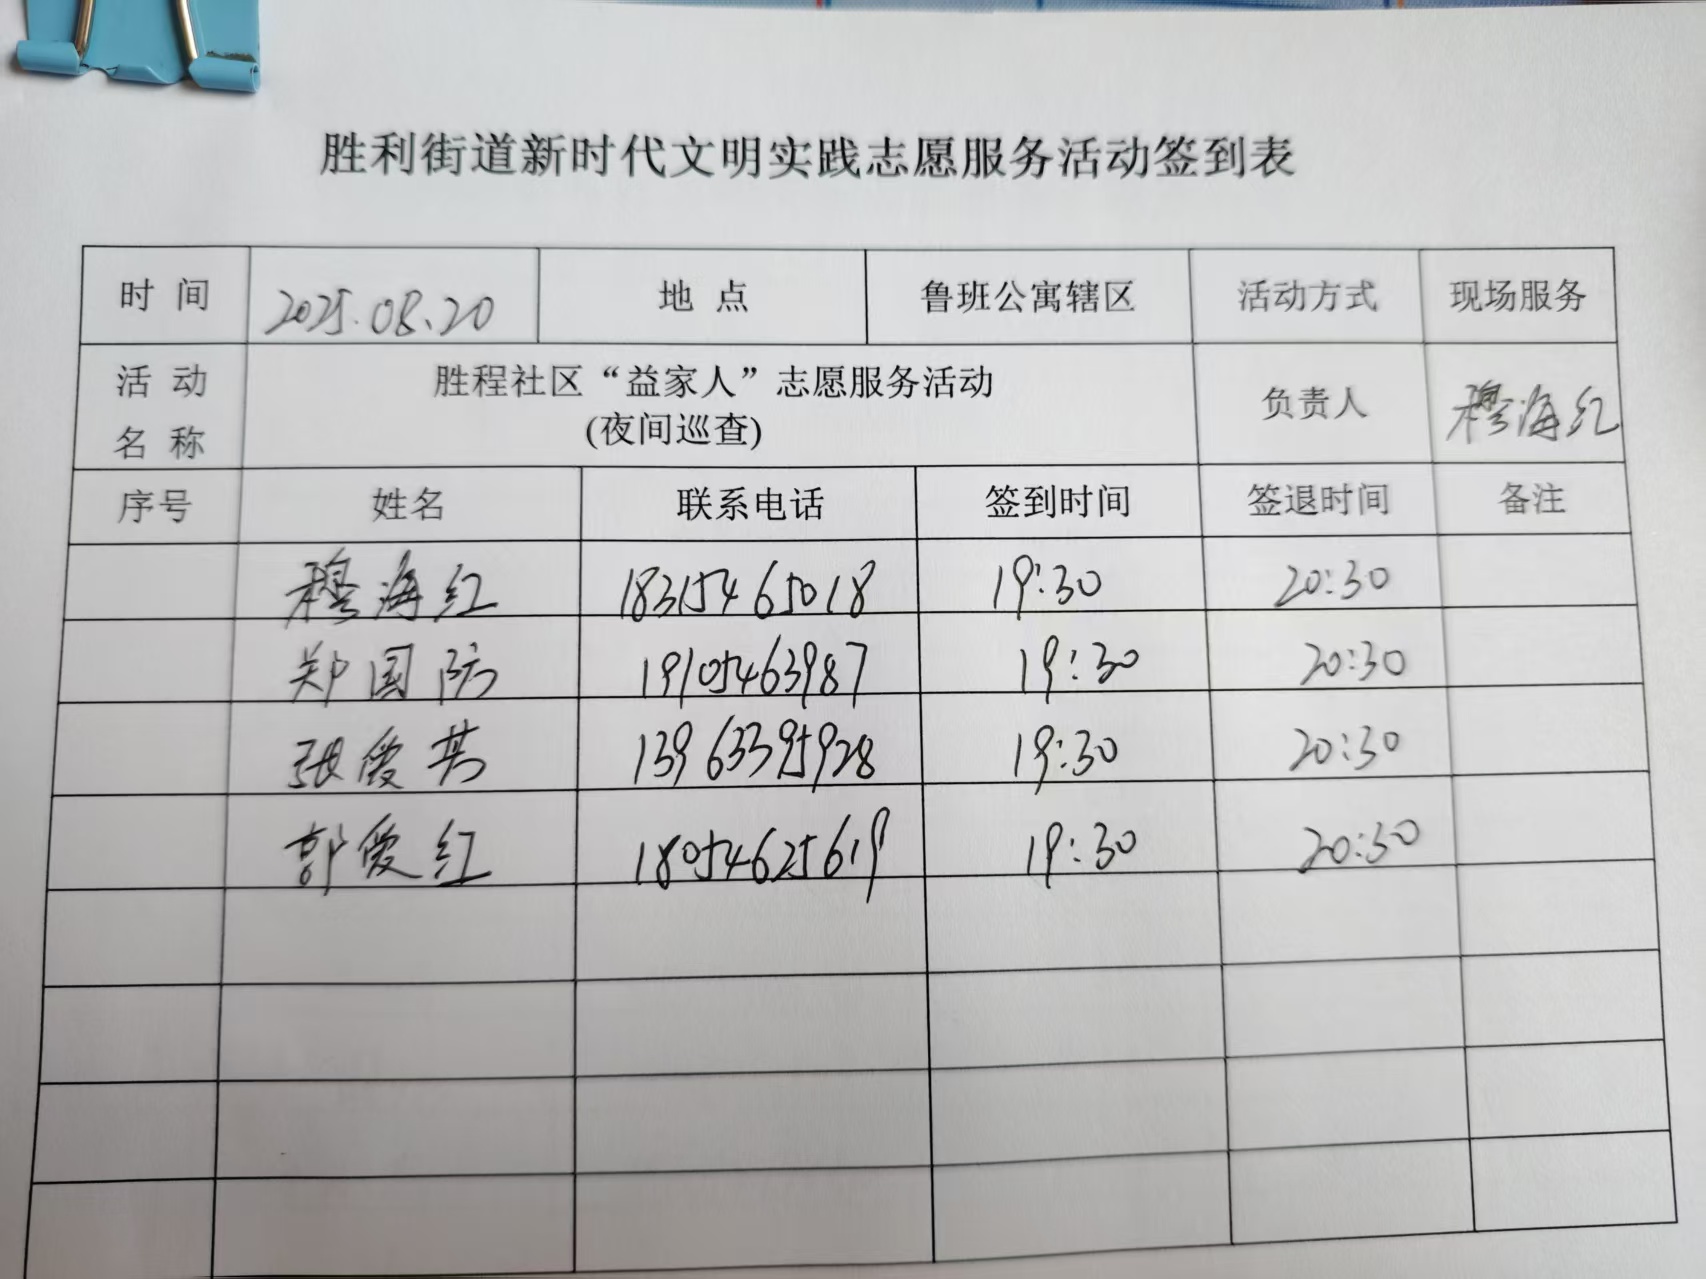 胜利街道新时代文明实践志愿服务活动签到表
时 间 2025.08.20 地 点 鲁班公寓辖区 活动方式 现场服务
活 动 名 称 胜程社区“益家人”志愿服务活动 (夜间巡查) 负责人 穆海红
序号 姓名 联系电话 签到时间 签退时间 备注
穆海红 18315465018 19:30 20:30
郑国防 19105463987 19:30 20:30
张爱英 13963395928 19:30 20:30
郭爱红 18054625619 19:30 20:30